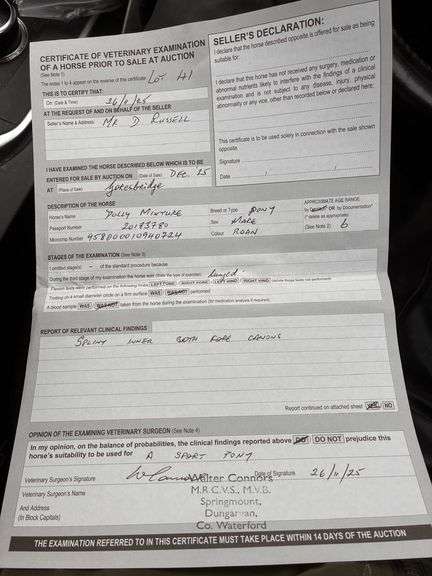 CERTIFICATE OF VETERINARY EXAMINATION
OF A HORSE PRIOR TO SALE AT AUCTION
(See Note 1)
The notes 1 to 4 appear on the reverse of this certificate Lot 41
THIS IS TO CERTIFY THAT:
On (Date & Time) 26/11/25
AT THE REQUEST OF AND ON BEHALF OF THE SELLER
Seller's Name & Address MR D. RUSSELL
I HAVE EXAMINED THE HORSE DESCRIBED BELOW WHICH IS TO BE
ENTERED FOR SALE BY AUCTION ON (Date of Sale) DEC. 25
AT (Place of Sale) Goresbridge
SELLER'S DECLARATION:
I declare that the horse described opposite is offered for sale as being
suitable for:
I declare that this horse has not received any surgery, medication or
abnormal nutrients likely to interfere with the findings of a clinical
examination and is not subject to any disease, injury, physical
abnormality or any vice, other than recorded below or declared here:
This certificate is to be used solely in connection with the sale shown
opposite.
Signature
Date
DESCRIPTION OF THE HORSE
Horse's Name DOLLY MIXTURE
Breed or Type PONY
Passport Number 20183780
Sex MARE
Microchip Number 958000010940724
Colour ROAN
APPROXIMATE AGE RANGE
by Dentition* OR by Documentation*
(* delete as appropriate)
(See Note 2) 6
STAGES OF THE EXAMINATION (See Note 3)
I omitted stage(s) - of the standard procedure because
During the third stage of my examination the horse was (State the type of exercise) lunged
Flexion tests were performed on the following limbs LEFT FORE RIGHT FORE LEFT HIND RIGHT HIND
Trotting on a small diameter circle on a firm surface WAS WAS NOT performed
A blood sample WAS WAS NOT taken from the horse during the examination (for medication analysis if required)
REPORT OF RELEVANT CLINICAL FINDINGS
SPLINT INNER BOTH FORE CANONS
Report continued on attached sheet YES NO
OPINION OF THE EXAMINING VETERINARY SURGEON (See Note 4)
In my opinion, on the balance of probabilities, the clinical findings reported above DO DO NOT prejudice this
horse's suitability to be used for A SPORT PONY
Veterinary Surgeon's Signature
Date of Signature 26/11/25
Veterinary Surgeon's Name
And Address
(In Block Capitals)
Walter Connors
M.R.C.V.S., M.V.B.
Springmount,
Dungarvan,
Co. Waterford
THE EXAMINATION REFERRED TO IN THIS CERTIFICATE MUST TAKE PLACE WITHIN 14 DAYS OF THE AUCTION